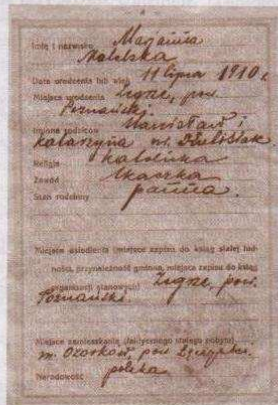 Imię i nazwisko Marjanna
Nolelska
Data urodzenia lub wiek 11 lipca 1910 r
Miejsce urodzenia Zegrze, pow.
Poznański.
Imiona rodziców Stanisław i
Katarzyna
Religja katolicka
Zawód tkaczka
Stan rodzinny panna.
Miejsce osiedlenia (miejsce zapisu do ksiąg stałej lud-
ności, przynależność gminna, miejsce zapisu do ksiąg
organizacji stanowych) pow.
Poznański.
Miejsce zamieszkania (faktycznego stałego pobytu)
m. Ozorków, pow. Łęczycki.
Narodowość polska